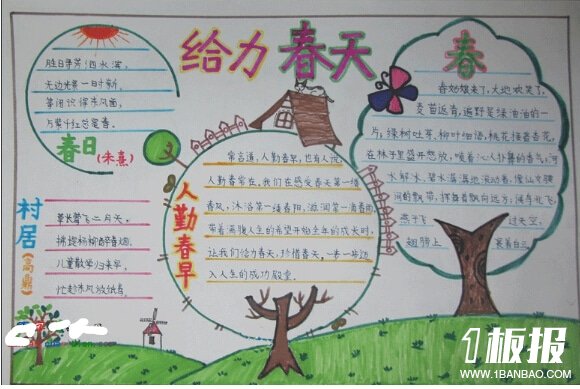 给力春天
胜日寻芳泗水滨,
无边光景一时新。
等闲识得东风面,
万紫千红总是春。
春日
(朱熹)
村居
(高鼎)
草长莺飞二月天,
拂堤杨柳醉春烟。
儿童散学归来早,
忙趁东风放纸鸢。
人勤春早
常言道,人勤春早,也有人说,
人勤春常在,我们在感受春天第一缕
春风,沐浴第一缕春阳,滋润第一滴春雨,
带着满腹人生的希望开始全年的成长时,
让我们给力春天,珍惜春天,一步一步迈
入人生的成功殿堂。
春
春姑娘来了,大地欢笑了。
麦苗返青,遍野是绿油油的一
片;绿树吐芽,柳叶细语,桃花接着杏花,
在林子里盛开怒放,喷着沁人扑鼻的香气,河
水解冰,碧水温温地滚动着,像仙女腰
间的飘带,挥舞着飘向远方;
燕子飞 过天空,
翅膀上 裹着白云
1板报
WWW.1BANBAO.COM